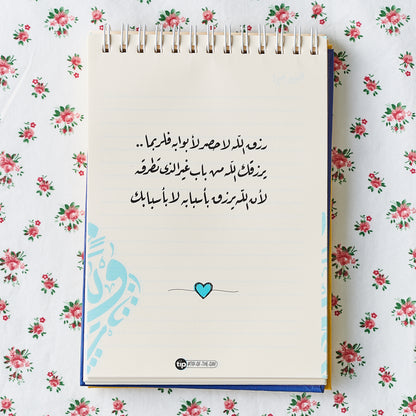 رزق الله لا حصر لأبوابه فلربما..
يرزقك الله من باب غير الذي تطرقه
لأن الله يرزق بأسبابه لا بأسبابك
tip #TIP-OF-THE-DAY
tip OF THE DAY